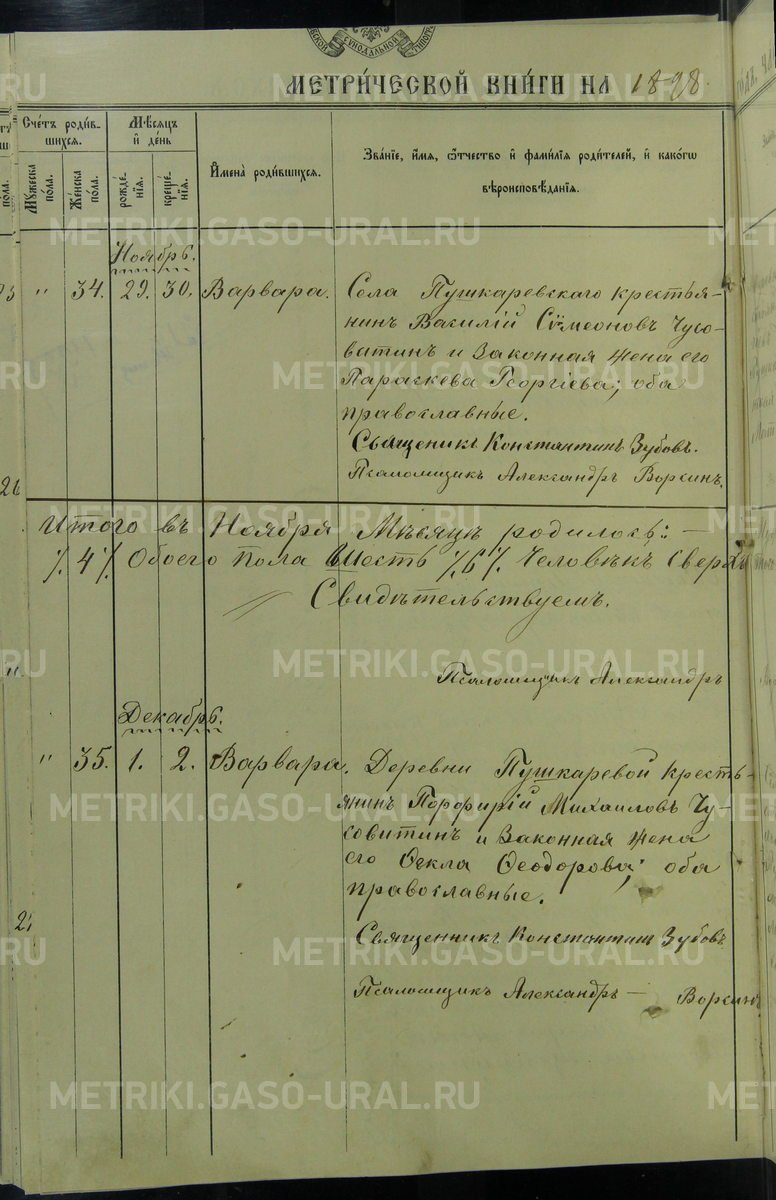 СѴНОДАЛЬНОЙ
МЕТРИ́ЧЕСКОЙ КНИ́ГИ НА 1898.
Сче́тъ роди́в-
шихся.
Мѣ́сяцъ
и҆ де́нь
Мꙋ́жеска
по́ла.
Же́нска
по́ла.
рожде́-
нїѧ.
креще́-
нїѧ.
И҆мена̀ роди́вшихсѧ.
Зва́нїе, и҆́мѧ, ѻ҆́тчество и҆ фами́лїѧ роди́телей, и҆ како́гѡ
вѣроисповѣ́данїѧ.
Ноябрь.
" 34. 29. 30. Варвара. Села Пушкаревскаго крестья-
нинъ Василій Сѵмеоновъ Чусо-
витинъ и законная жена его
Параскева Георгіева; оба
православные.
Священникъ Константинъ Зубовъ.
Псаломщикъ Александръ Ворсинъ.
Итого въ Ноября Мѣсяцѣ родилось: —
/. 4 /. Обоего пола Шесть /. 6 /. Человѣкъ
Свидѣтельствуемъ.
Псаломщикъ Александръ
Декабрь.
" 35. 1. 2. Варвара. Деревни Пушкаревой кресть-
янинъ Порфирій Михаиловъ Чу-
совитинъ и законная жена
его Ѳекла Ѳеодорова; оба
православные.
Священникъ Константинъ Зубовъ
Псаломщикъ Александръ — Ворсинъ
METRIKI.GASO-URAL.RU